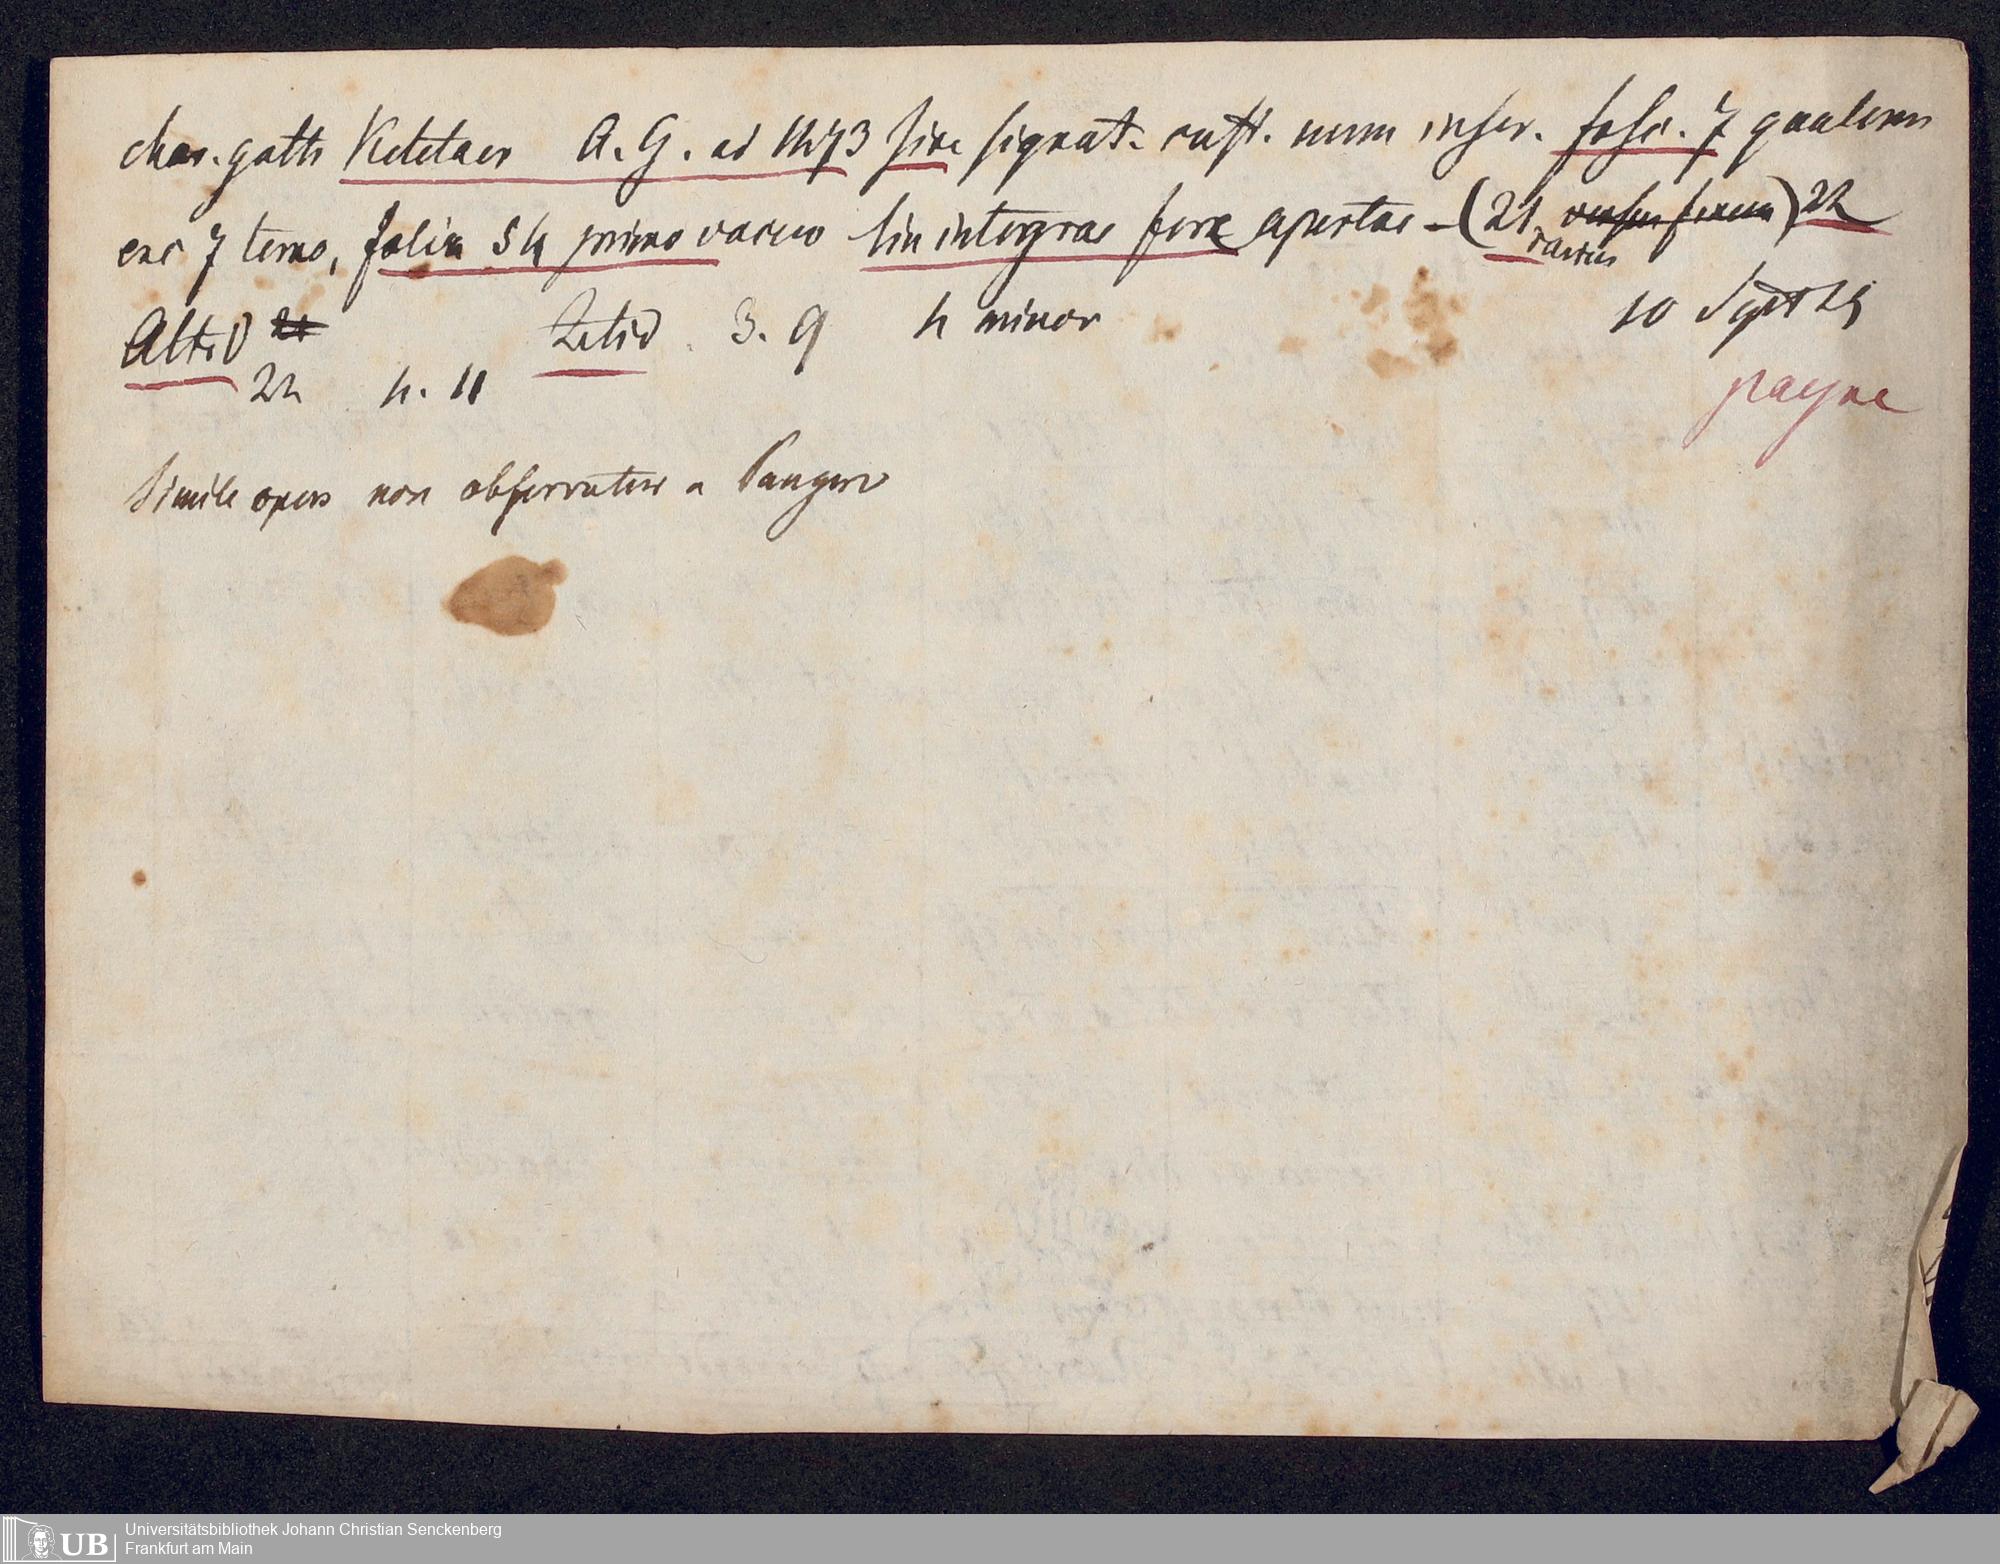 char. goth Ketelaer A. G. ad 1473 sine signat. cust. num inser. fasc. 7 quatern
ens 7 terno, folia 54 primo vacuo lin integras fere apertae - (21 versus finem) 24
vacuus
Altid 21 Latid. 3. 9 4 minor 10 Sept 25
24 4. 11 payne
Simile opus non observatur a Panzero
Universitätsbibliothek Johann Christian Senckenberg
UB Frankfurt am Main